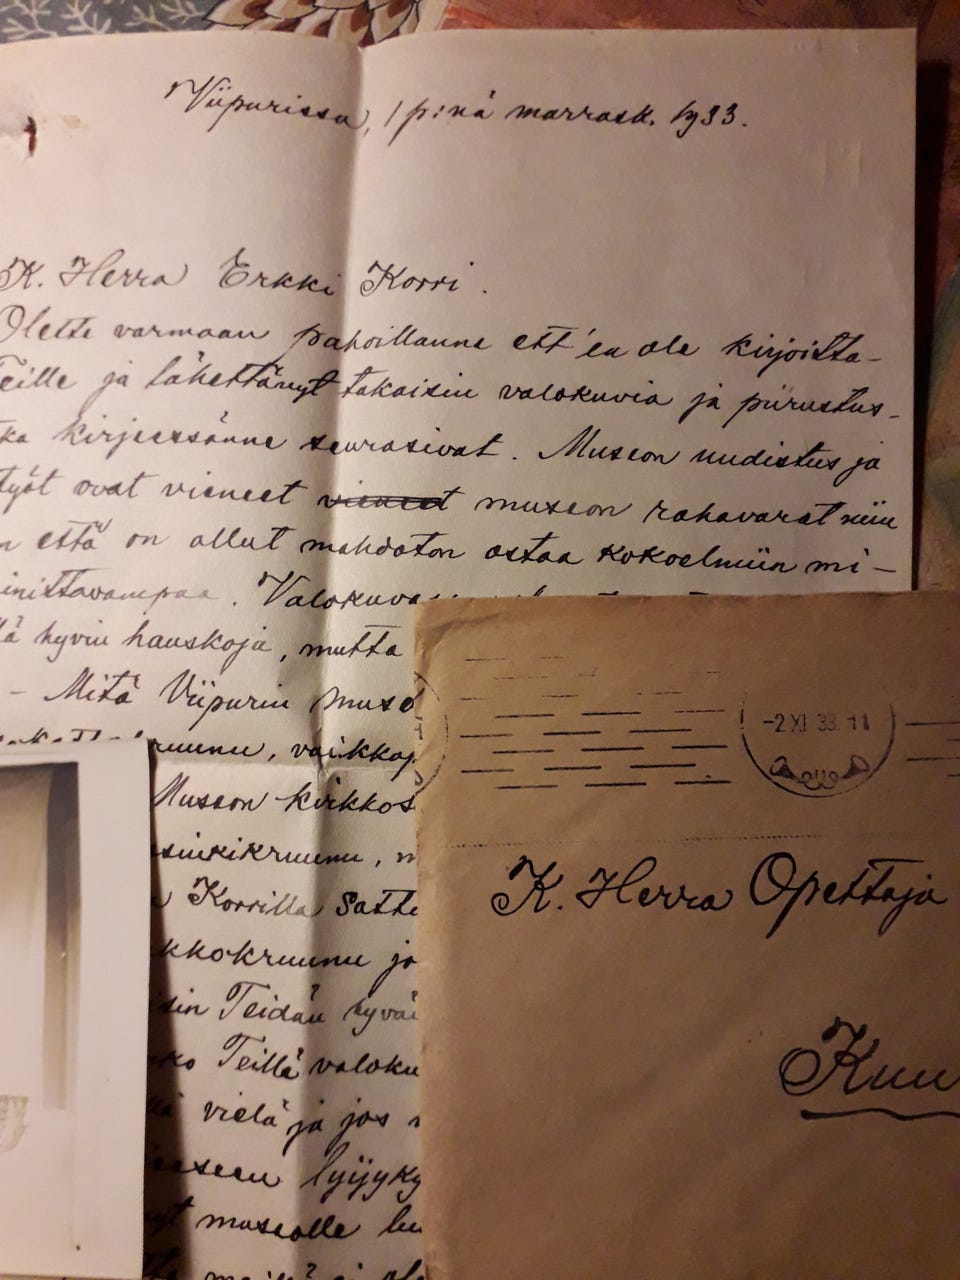 Viipurissa, 1 p:nä marrask. 1933.
K. Herra Erkki Korri.
Olette varmaan pahoillanne ett'en ole kirjoitta-
Teille ja lähettänyt takaisin valokuvia ja piirustus-
kirjeessänne seurasivat. Museon uudistus ja
työt ovat vieneet vieneet museon rahavarat niin
että on ollut mahdoton ostaa kokoelmiin mi-
inittavampaa. Valokuva
hyvin hauskoja, mutta
- Mitä Viipurin museo
kruunu, vaikkap
Museon kirkkos
sinkikruunu, m
Korrilla satte
kkokruunu jo
sin Teidän hyvä
ko Teillä valoku
vielä ja jos
iseseen lyijyky
museolle lu
-2.XI.33.-11
K. Herra Opettaja
Kuu